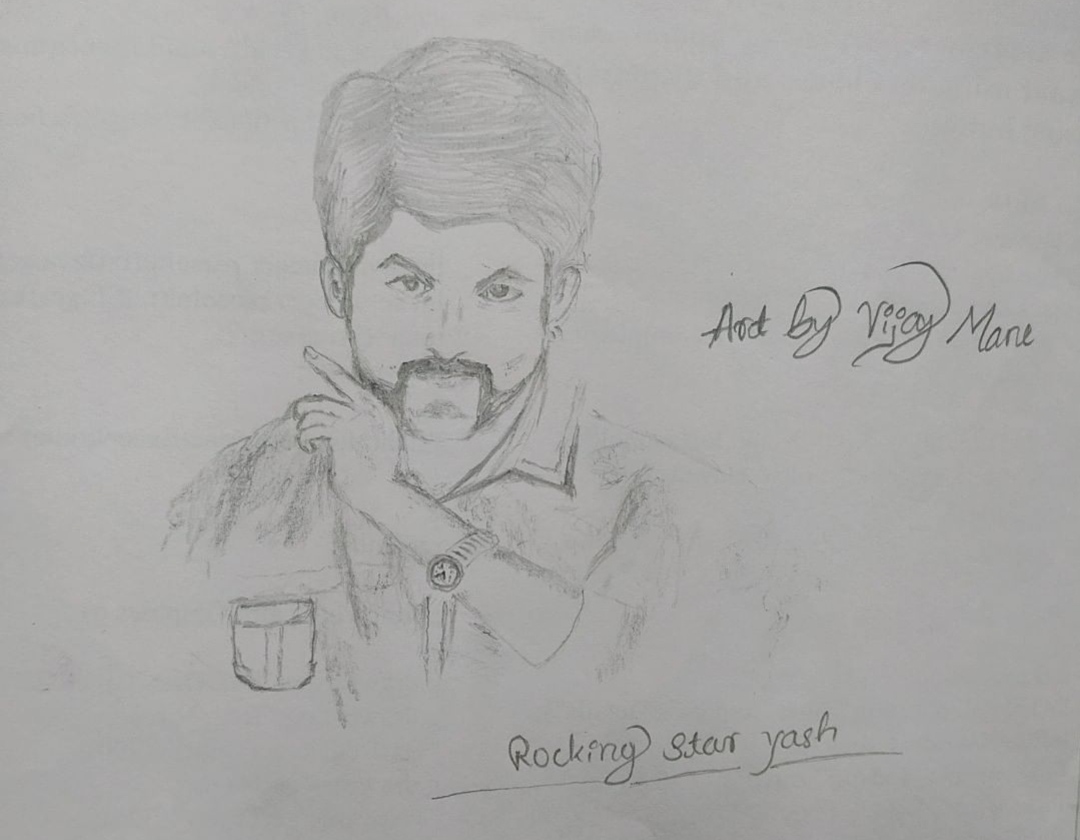 Art by Vijay Mane
Rocking star yash